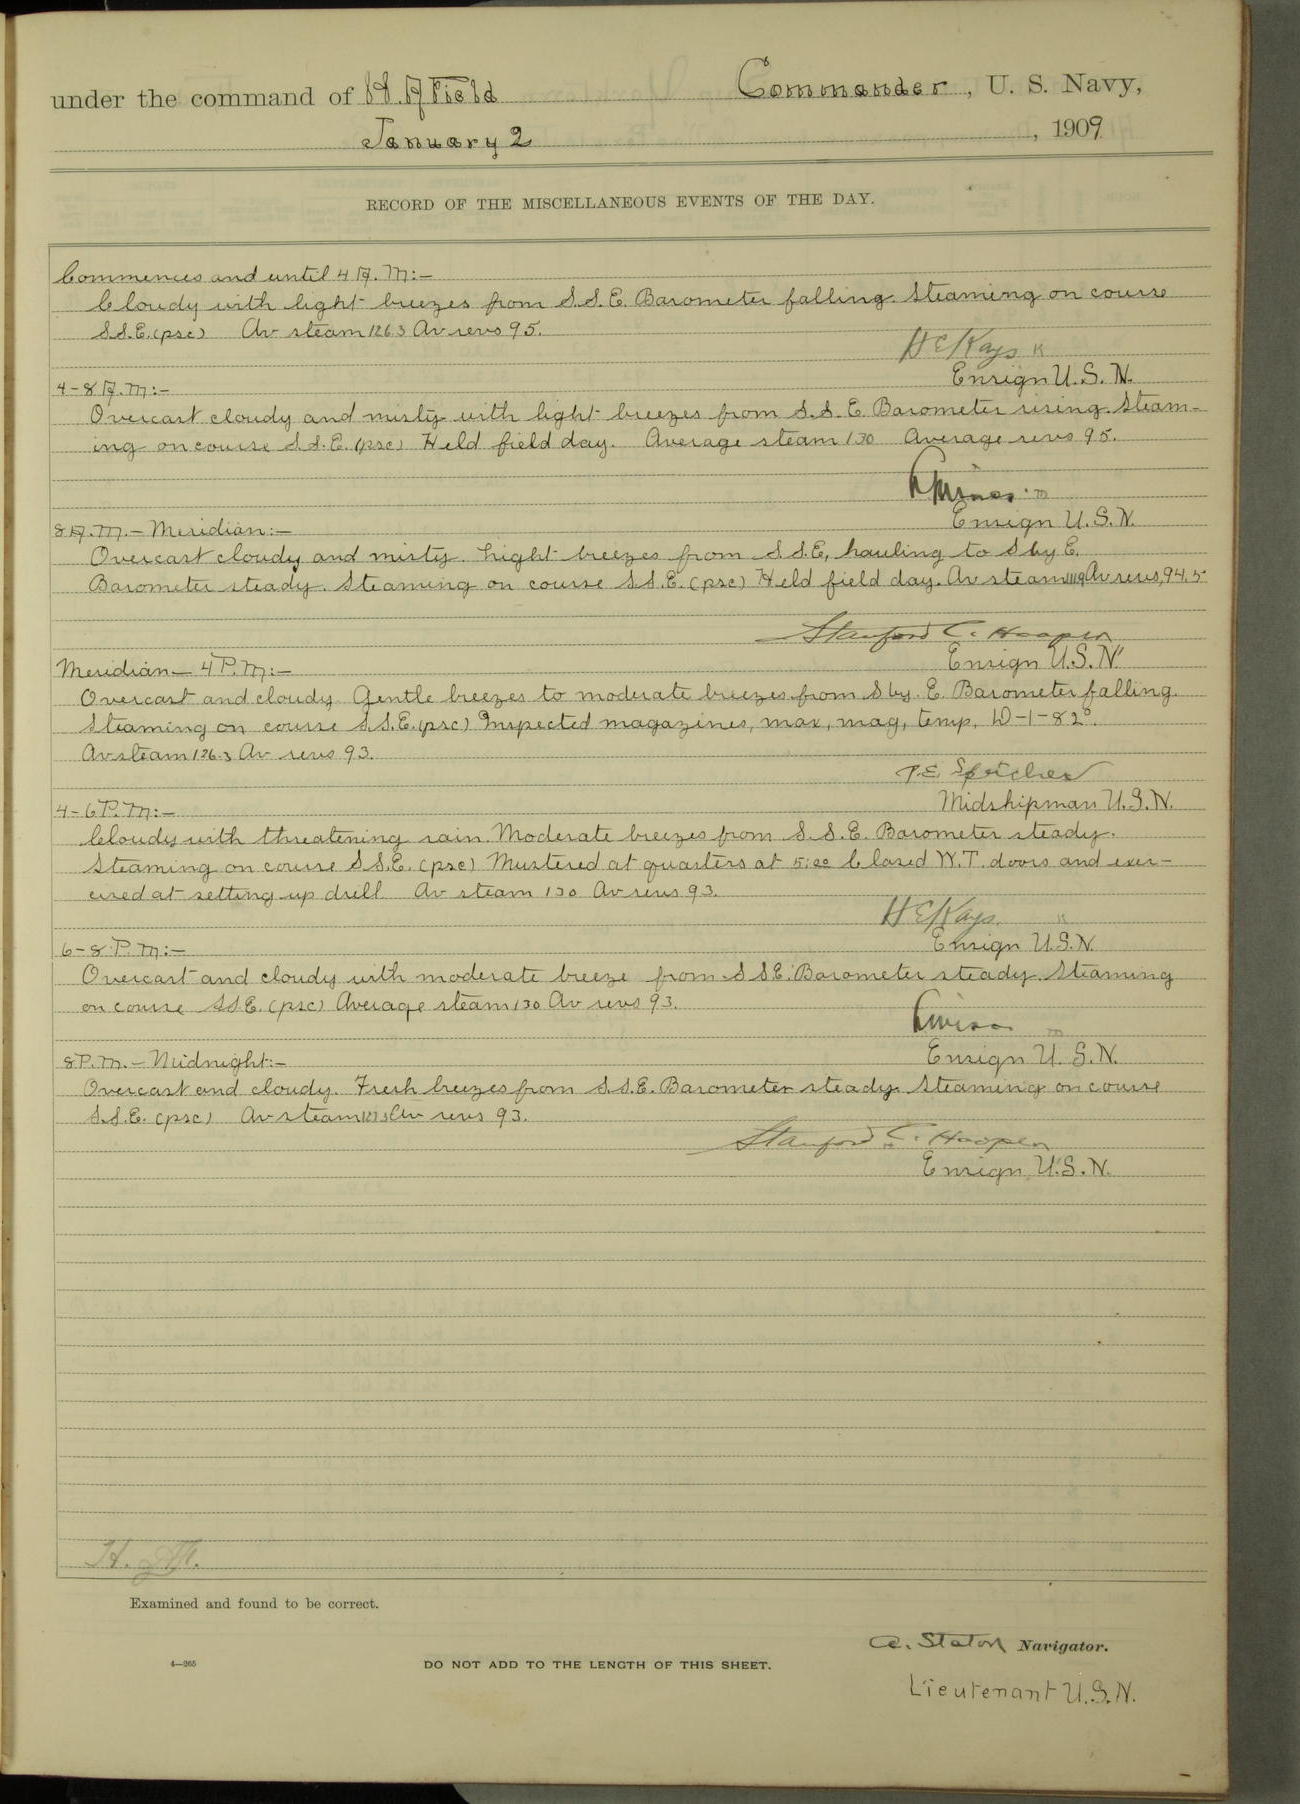 under the command of H. A Field Commander, U. S. Navy,
January 2, 1909
RECORD OF THE MISCELLANEOUS EVENTS OF THE DAY.
Commences and until 4 A.M:—
Cloudy with light breezes from S.S.E. Barometer falling. Steaming on course
S.S.E. (psc) Av steam 126.3 Av revs 95.
H E Kays K
Ensign U.S.N.
4-8 A.M:—
Overcast cloudy and misty with light breezes from S.S.E. Barometer rising. Steam-
ing on course S.S.E. (psc) Held field day. Average steam 130 Average revs 95.
Ensign U.S.N.
8 A.M.— Meridian:—
Overcast cloudy and misty. Light breezes from S.S.E, hauling to S by E.
Barometer steady. Steaming on course S.S.E. (psc) Held field day. Av steam Av revs, 94.5
Stanford C. Hooper
Ensign U.S.N.
Meridian— 4 P.M:—
Overcast and cloudy. Gentle breezes to moderate breezes from S by. E. Barometer falling.
Steaming on course S.S.E. (psc) Inspected magazines, max, mag, temp, D-1-82°.
Av steam 126.3 Av revs 93.
T.E. Speicher
Midshipman U.S.N.
4-6 P.M:—
Cloudy with threatening rain. Moderate breezes from S.S.E. Barometer steady.
Steaming on course S.S.E. (psc) Mustered at quarters at 5:00 Closed W.T. doors and exer-
cised at setting up drill. Av steam 130 Av revs 93.
H E Kays. K
Ensign U.S.N.
6-8 P.M:—
Overcast and cloudy with moderate breeze from S S E. Barometer steady. Steaming
on course S.S.E. (psc) Average steam 130 Av revs 93.
Ensign U.S.N.
8 P.M.— Midnight:—
Overcast and cloudy. Fresh breezes from S.S.E. Barometer steady. Steaming on course
S.S.E. (psc) Av steam Av revs 93.
Stanford C. Hooper
Ensign, U.S.N.
Examined and found to be correct.
a. Staton Navigator.
4—265 DO NOT ADD TO THE LENGTH OF THIS SHEET.
Lieutenant U.S.N.